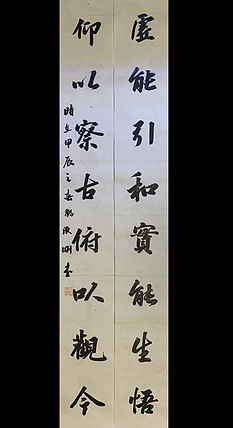 虛能引和實能生悟
仰以察古俯以觀今
時在甲辰之春